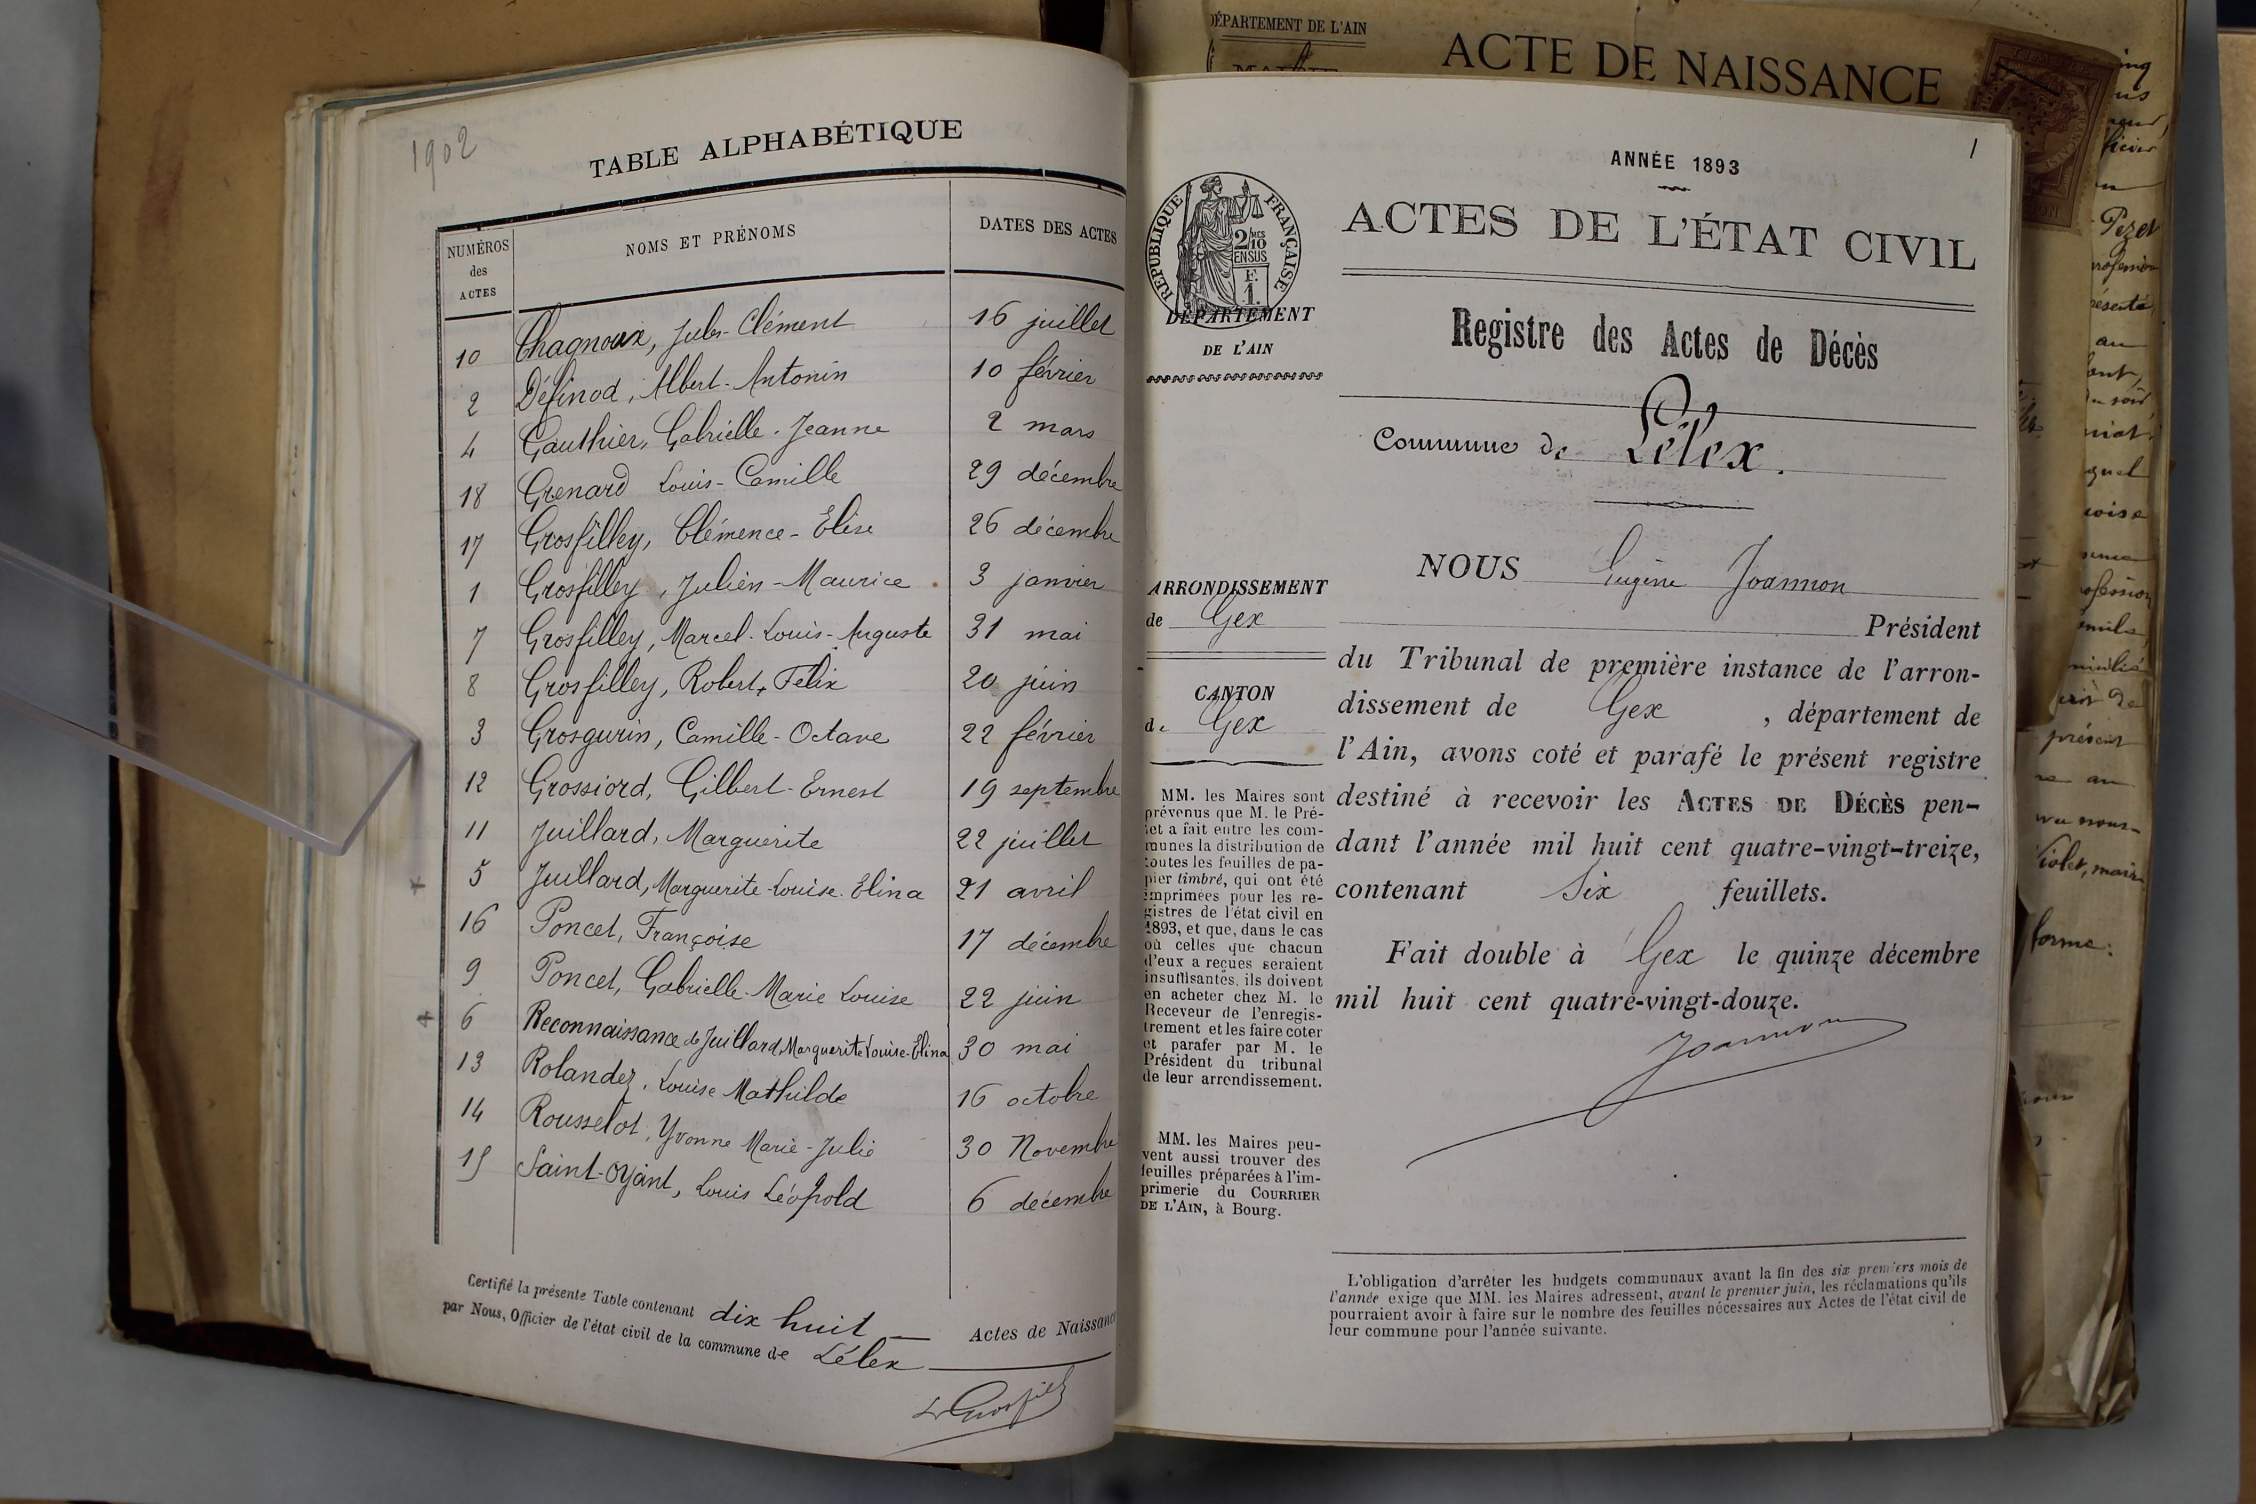 1902
TABLE ALPHABÉTIQUE
NUMÉROS
des
ACTES
NOMS ET PRÉNOMS
DATES DES ACTES
10 Chagnoux, Jules-Clément 16 juillet
2 Définod, Albert-Antonin 10 février
4 Gauthier, Gabrielle-Jeanne 2 mars
18 Grenard Louis-Camille 29 décembre
17 Grosfilley, Clémence-Elise 26 décembre
1 Grosfilley, Julien-Maurice 3 janvier
7 Grosfilley, Marcel-Louis-Auguste 31 mai
8 Grosfilley, Robert, Félix 20 juin
3 Grosgurin, Camille-Octave 22 février
12 Grossiord, Gilbert-Ernest 19 septembre
11 Juillard, Marguerite 22 juillet
5 Juillard, Marguerite-Louise-Elina 21 avril
16 Poncet, Françoise 17 décembre
9 Poncet, Gabrielle-Marie Louise 22 juin
6 Reconnaissance de Juillard, Marguerite Louise-Elina 30 mai
13 Rolandez, Louise Mathilde 16 octobre
14 Rousselot, Yvonne Marie-Julie 30 Novembre
15 Saint-Oyant, Louis Léopold 6 décembre
Certifié la présente Table contenant dix huit Actes de Naissance
par Nous, Officier de l'état civil de la commune de Lélex
DÉPARTEMENT DE L'AIN
ACTE DE NAISSANCE
1
ANNÉE 1893
RÉPUBLIQUE FRANÇAISE
2/10 MES
EN SUS
F.
1.
ACTES DE L'ÉTAT CIVIL
DÉPARTEMENT
DE L'AIN
Registre des Actes de Décès
Commune de Lélex.
ARRONDISSEMENT
de Gex
CANTON
de Gex
MM. les Maires sont
prévenus que M. le Pré-
fet a fait entre les com-
munes la distribution de
toutes les feuilles de pa-
pier timbré, qui ont été
imprimées pour les re-
gistres de l'état civil en
1893, et que, dans le cas
où celles que chacun
d'eux a reçues seraient
insuffisantes, ils doivent
en acheter chez M. le
Receveur de l'enregis-
trement et les faire coter
et parafer par M. le
Président du tribunal
de leur arrondissement.
MM. les Maires peu-
vent aussi trouver des
feuilles préparées à l'im-
primerie du COURRIER
DE L'AIN, à Bourg.
NOUS Eugène Joannon
Président
du Tribunal de première instance de l'arron-
dissement de Gex, département de
l'Ain, avons coté et parafé le présent registre
destiné à recevoir les ACTES DE DÉCÈS pen-
dant l'année mil huit cent quatre-vingt-treize,
contenant Six feuillets.
Fait double à Gex le quinze décembre
mil huit cent quatre-vingt-douze.
Joannon
L'obligation d'arrêter les budgets communaux avant la fin des six premiers mois de
l'année exige que MM. les Maires adressent, avant le premier juin, les réclamations qu'ils
pourraient avoir à faire sur le nombre des feuilles nécessaires aux Actes de l'état civil de
leur commune pour l'année suivante.
Pezet
présent
forme: